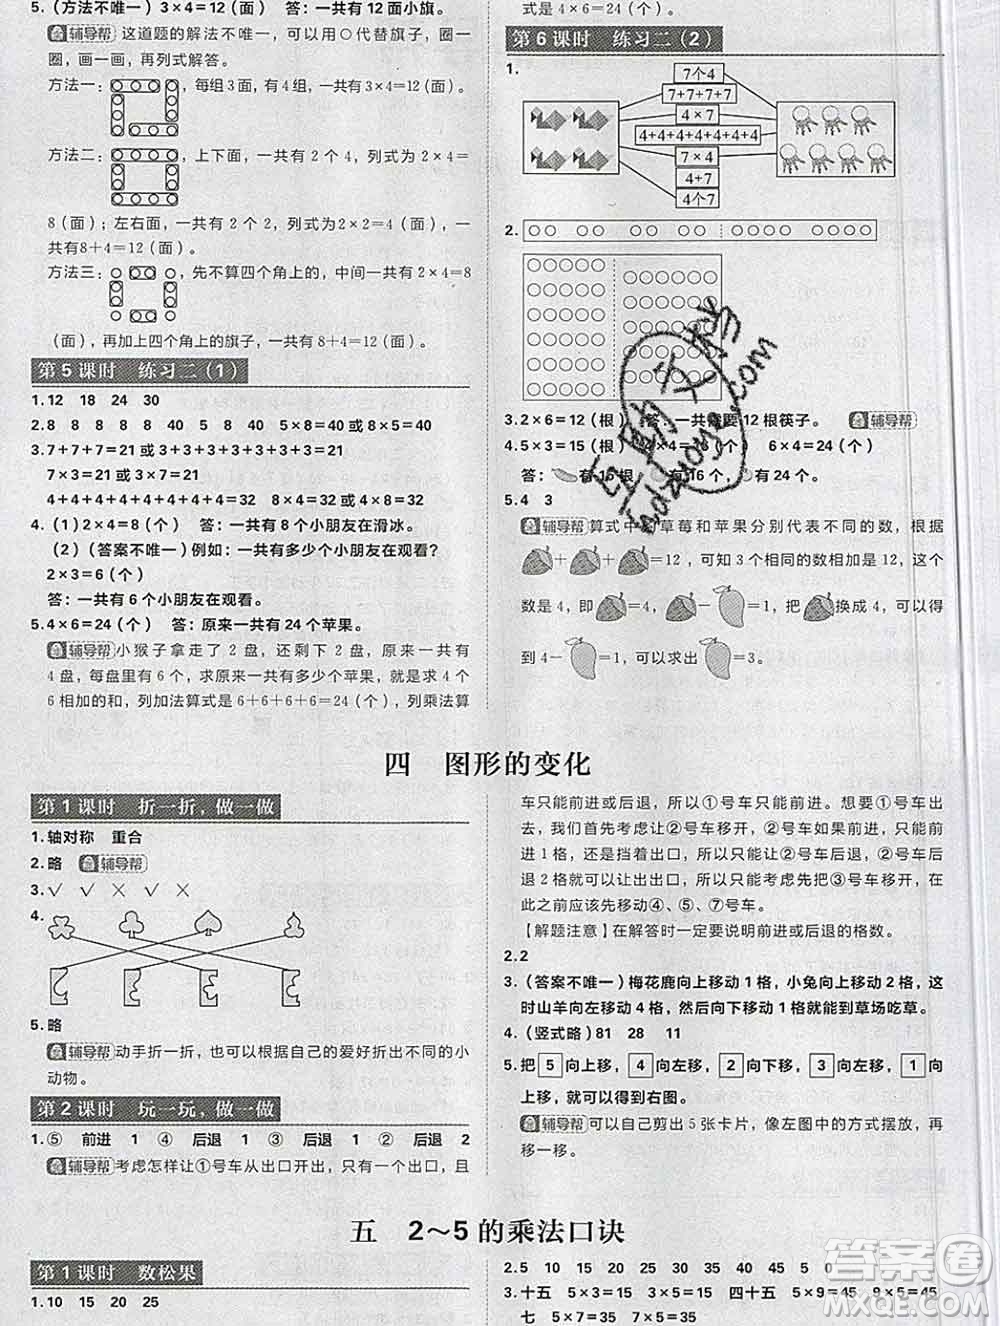 5.(方法不唯一)3×4=12(面) 答:一共有 12 面小旗。
辅导帮 这道题的解法不唯一,可以用○代替旗子,圈一
圈,画一画,再列式解答。
方法一: ,每组3面,有4组,一共有 3×4=12(面)
方法二: ,上下面,一共有 2 个 4,列式为 2×4=
8(面);左右面,一共有 2 个 2,列式为2×2=4(面),一
共有8+4=12(面)。
方法三: ,先不算四个角上的,中间一共有 2×4=8
(面),再加上四个角上的旗子,一共有 8+4=12(面)。
第 5 课时 练习二(1)
1.12 18 24 30
2.8 8 8 8 8 5 8 40 5×8=40 或 8×5=40
3.7+7+7=21 或 3+3+3+3+3+3+3=21
7×3=21 或 3×7=21
4+4+4+4+4+4+4+4=32 8×4=32 或 4×8=32
4.(1)2×4=8(个) 答:一共有 8 个小朋友在滑冰。
(2)(答案不唯一)例如:一共有多少个小朋友在观看?
2×3=6(个)
答:一共有 6 个小朋友在观看。
5.4×6=24(个) 答:原来一共有 24 个苹果。
辅导帮 小猴子拿走了 2 盘,还剩下 2 盘,原来一共有
4 盘,每盘里有 6 个,求原来一共有多少个苹果,就是求 4
个 6 相加的和,列加法算式是 6+6+6+6=24(个),列乘法算
式是 4×6=24(个)。
第 6 课时 练习二(2)
1.
7个4
7+7+7+7
4×7
4+4+4+4+4+4+4
7×4
4+7
4个7
2.
3.2×6=12(根) 答:一共需要 12 根筷子。 辅导帮
4.5×3=15(根) 4×4=16(个) 6×4=24(个)
答: 有 15 根, 有 16 个, 有 24 个。
5.4 3
辅导帮 算式中的草莓和苹果分别代表不同的数,根据
+ + =12,可知 3 个相同的数相加是 12,这个
数是 4,即 =4, - =1,把 换成 4,可以得
到 4- =1,可以求出 =3。
四 图形的变化
第 1 课时 折一折,做一做
1.轴对称 重合
2.略 辅导帮
3.√ √ × √ √
4.
5.略
辅导帮 动手折一折,也可以根据自己的爱好折出不同的小
动物。
第 2 课时 玩一玩,做一做
1.⑤ 前进 1 ④ 后退 1 ③ 后退 1 ② 后退 2
辅导帮 考虑怎样让①号车从出口开出,只有一个出口,且
车只能前进或后退,所以①号车只能前进。想要①号车出
去,我们首先考虑让②号车移开,②号车如果前进,能前
进 1 格,还是挡着出口,所以只能让②号车后退,②号车
后退 2 格就可以让出出口,这时要先把③号车移开,在
此之前应该先移动④、⑤、⑦号车。
【解题注意】在解答时一定要说明前进或后退的格数。
2.2
3.(答案不唯一)梅花鹿向上移动 1 格,小兔向上移动 2 格,
这时山羊向左移动 4 格,然后向下移动 1 格就能到草场吃草。
4.(竖式略)81 28 11
5.把 5 向上移, 4 向左移, 2 向下移, 3 向左移, 1 向
上移,就能得到右图。
辅导帮 可以自己剪出 5 张卡片,像左图中的方式摆放,再
移一移。
五 2～5 的乘法口诀
第 1 课时 数松果
1.10 15 20 25
2.5 10 15 20 25 30 35 40 45 5 0
3.十五 5×3=15 3×5=15 四十五 5×9=45 9×5=45
七 5×7=35 7×5=35